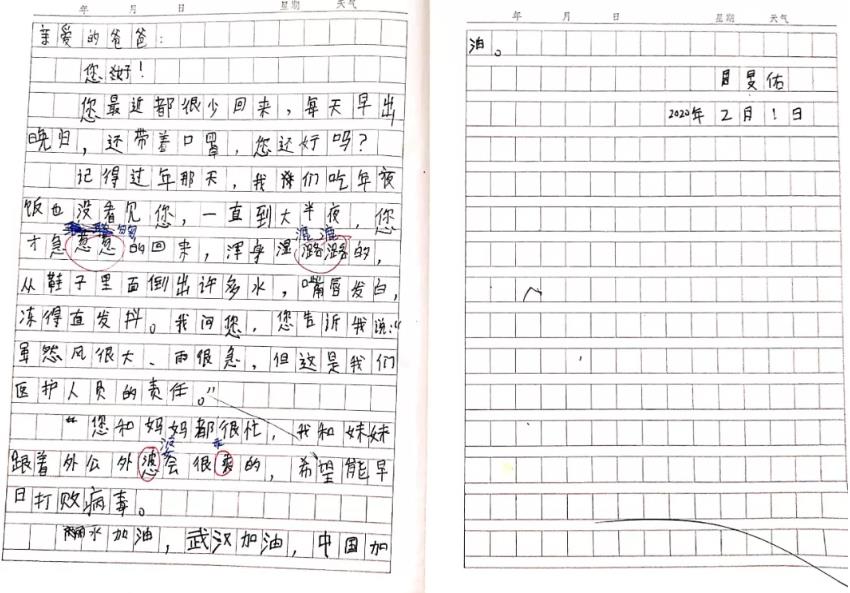 年 月 日 星期 天气
亲爱的爸爸：
您好！
您最近都很少回来，每天早出
晚归，还带着口罩，您还好吗？
记得过年那天，我们吃年夜
饭也没看见您，一直到大半夜，您
匆匆 漉漉
才急忽忽的回来，浑身湿潞潞的，
从鞋子里面倒出许多水，嘴唇发白，
冻得直发抖。我问您，您告诉我说："
虽然风很大、雨很急，但这是我们
医护人员的责任。"
"您和妈妈都很忙，我和妹妹
婆 乖
跟着外公外会很的，希望能早
日打败病毒。
水加油，武汉加油，中国加
年 月 日 星期 天气
油。
旻佑
2020年2月1日